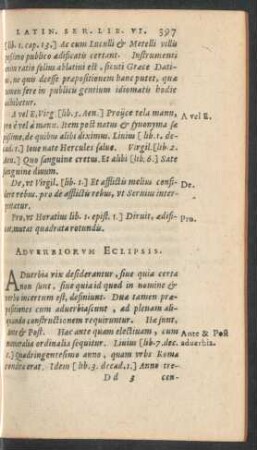 LATIN. SER. LIB. VI. 397
[lib. 1. cap. 13.] Ac cum Luculli & Metelli villis
publico ædificatis certant. Instrumenti
ratio solius ablatini est, sicuti Græce Dati
ne quis deesse præpositionem hanc putet, quæ
fere in publicũ gentium idiomatis hodie
A vel E, Virg. [lib. 5. Aen.] Proijce tela manu,
A vel E.
è vel à manu. Item post natus & synonyma
de quibus alibi diximus. Liuius [lib. 1. de-
cad. 1.] Ioue nate Hercules salue. Virgil. [lib. 2.
Aen.] Quo sanguine cretus. Et alibi [lib. 6.] Sate
sanguine diuum.
De, vt Virgil. [lib. 1.] Et afflictis melius confi-
De.
rebus. pro de afflictis rebus, vt Seruius inter-
pretatur.
Pro, vt Horatius lib. 1. epist. 1.] Diruit, ædifi-
Pro.
mutat quadrata rotundis.
ADVERBIORVM ECLIPSIS.
ADuerbia vix desiderantur, siue quia certa
non sunt, siue quia id quod in nomine &
verbo incertum est, definiunt. Duæ tamen præ-
positiones cum aduerbiascunt, ad plenam ali-
quando constructionem requiruntur. Hæ sunt,
& Post. Hac ante quam electiuam, cum
Ante & Post
ordinalia sequitur. Liuius [lib. 7. dec.
aduerbia.
1.] Quadringentesimo anno, quam vrbs Roma
condita erat. Idem [lib. 3. decad. 1.] Anno tre-
D d 3 cen-